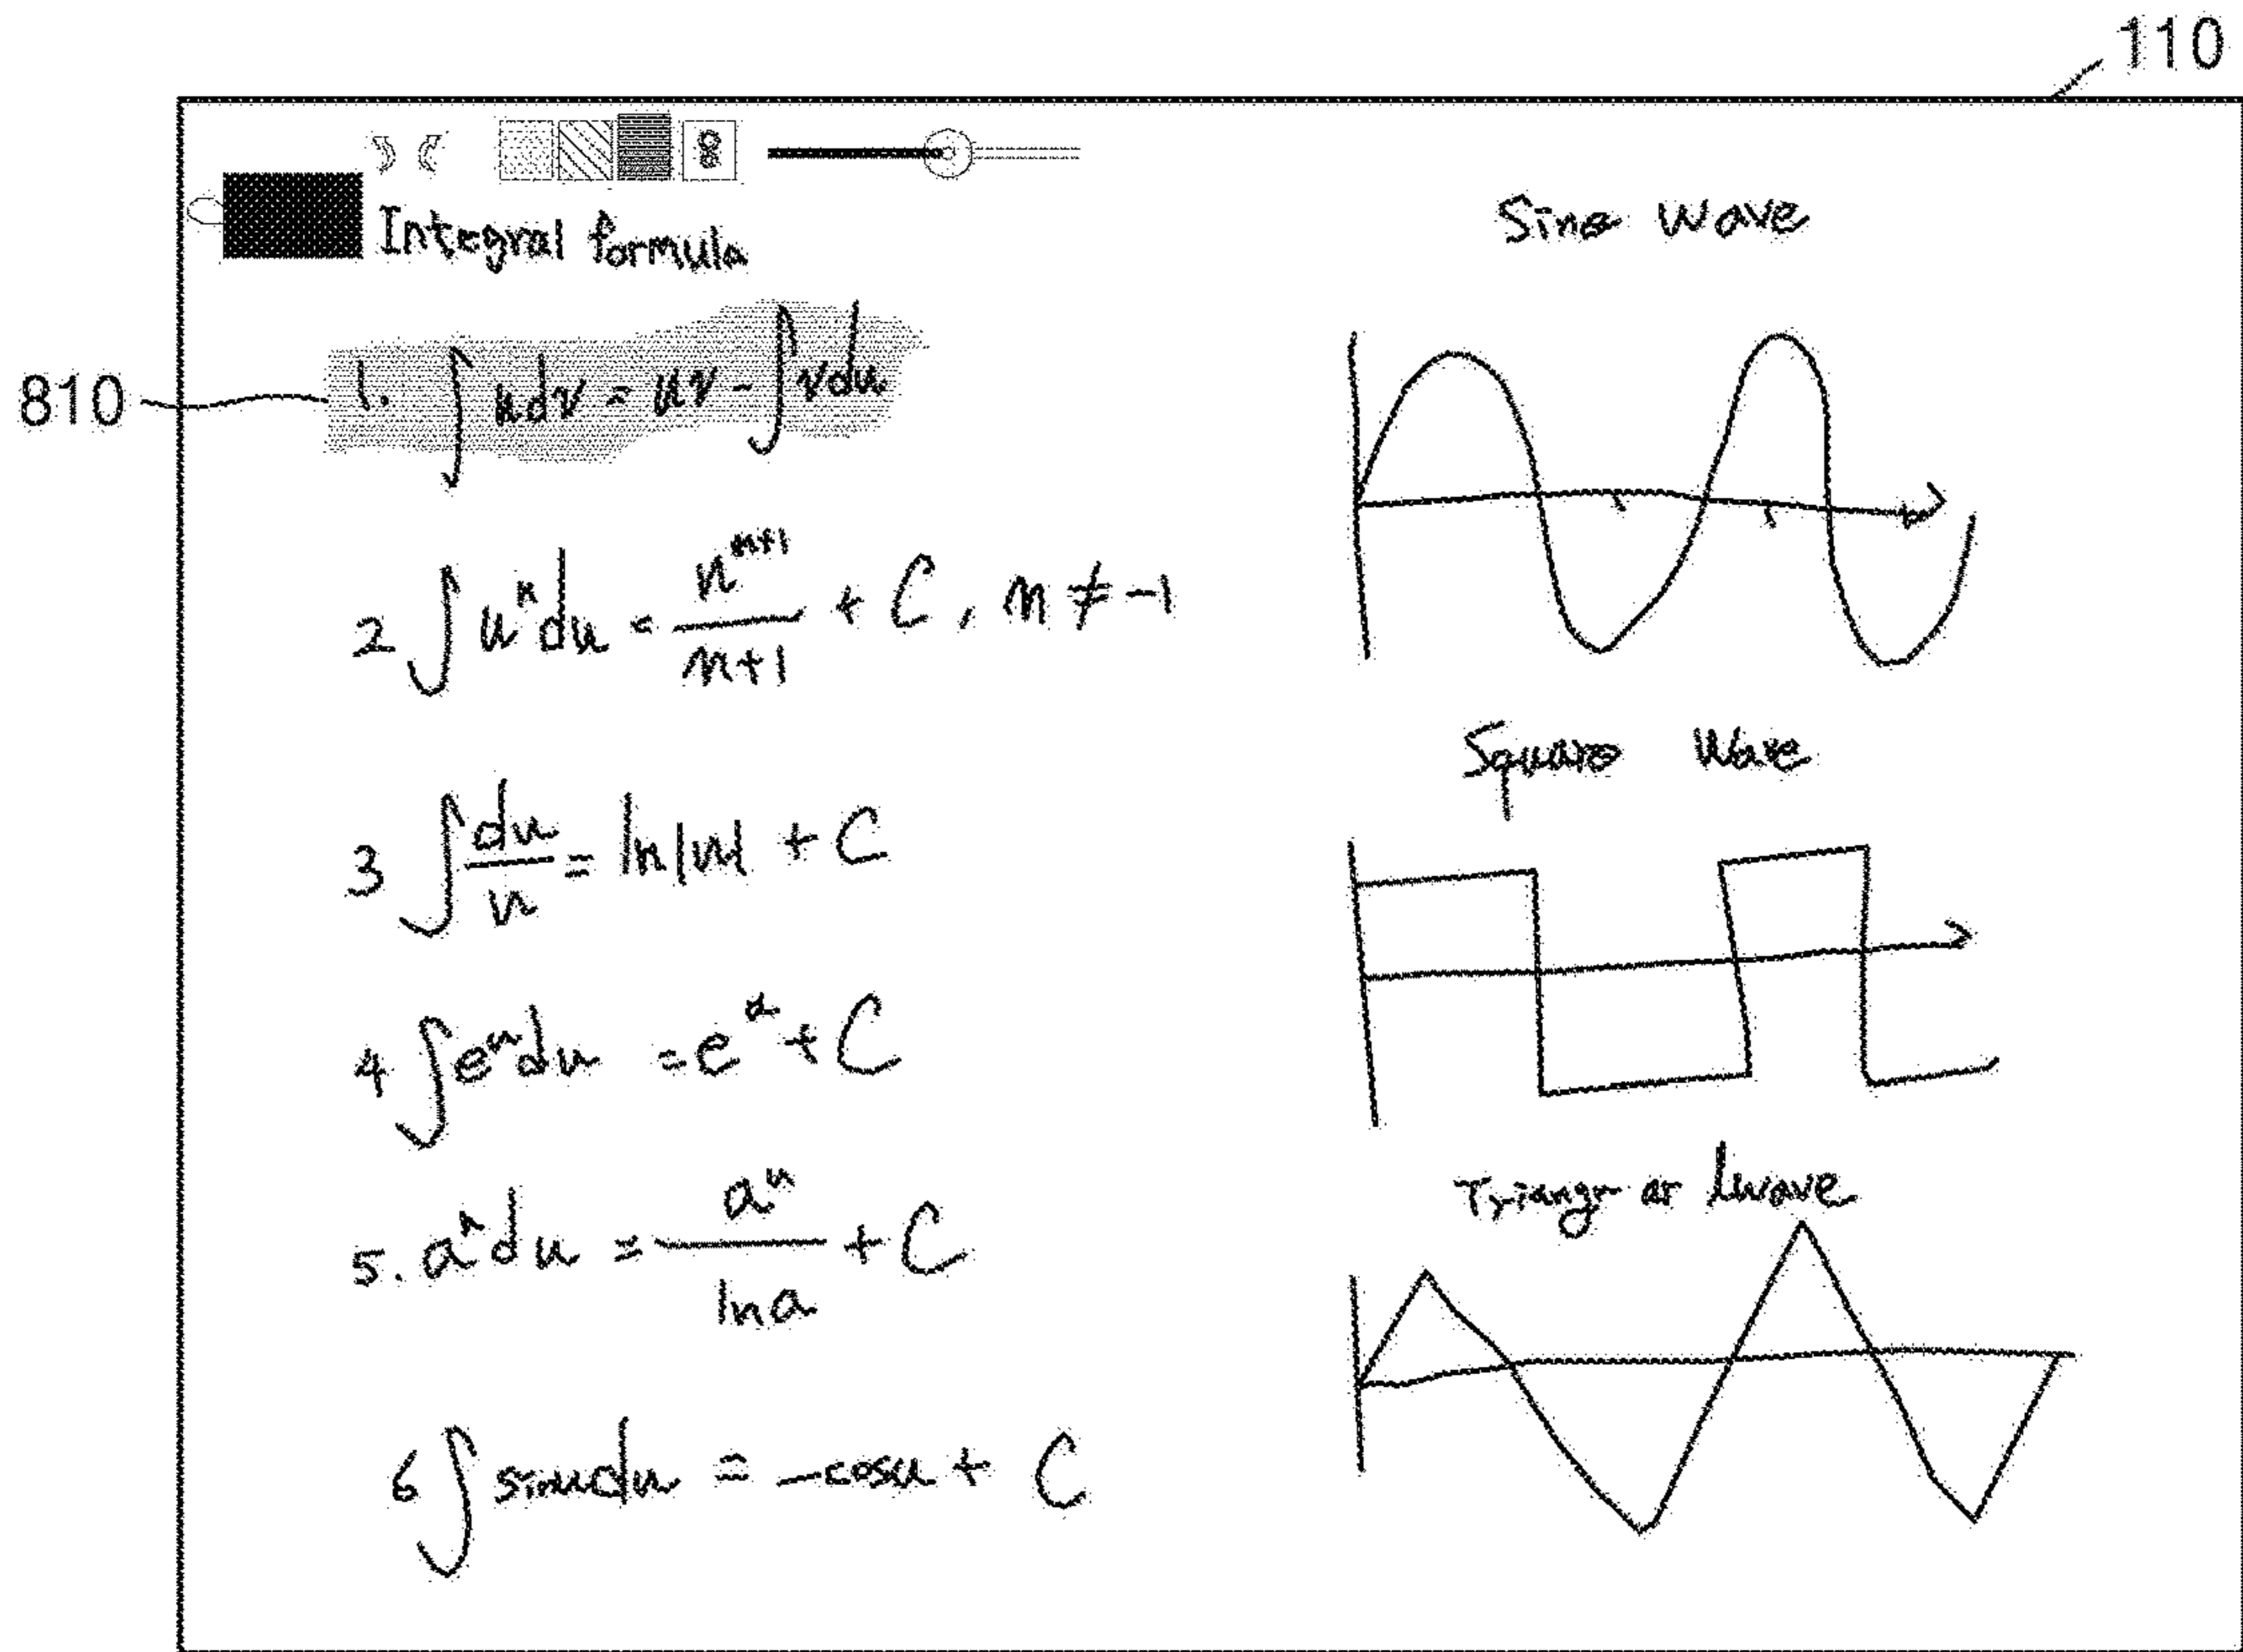 110
Integral formula
810
1. ∫ u dv = uv - ∫ v du
2 ∫ uⁿ du = uⁿ⁺¹/n+1 + C, n ≠ -1
3 ∫ du/u = ln|u| + C
4 ∫ eᵘ du = eᵘ + C
5. aᵘ du = aᵘ/ln a + C
6 ∫ sin u du = -cos u + C
Sine wave
Square wave
wave